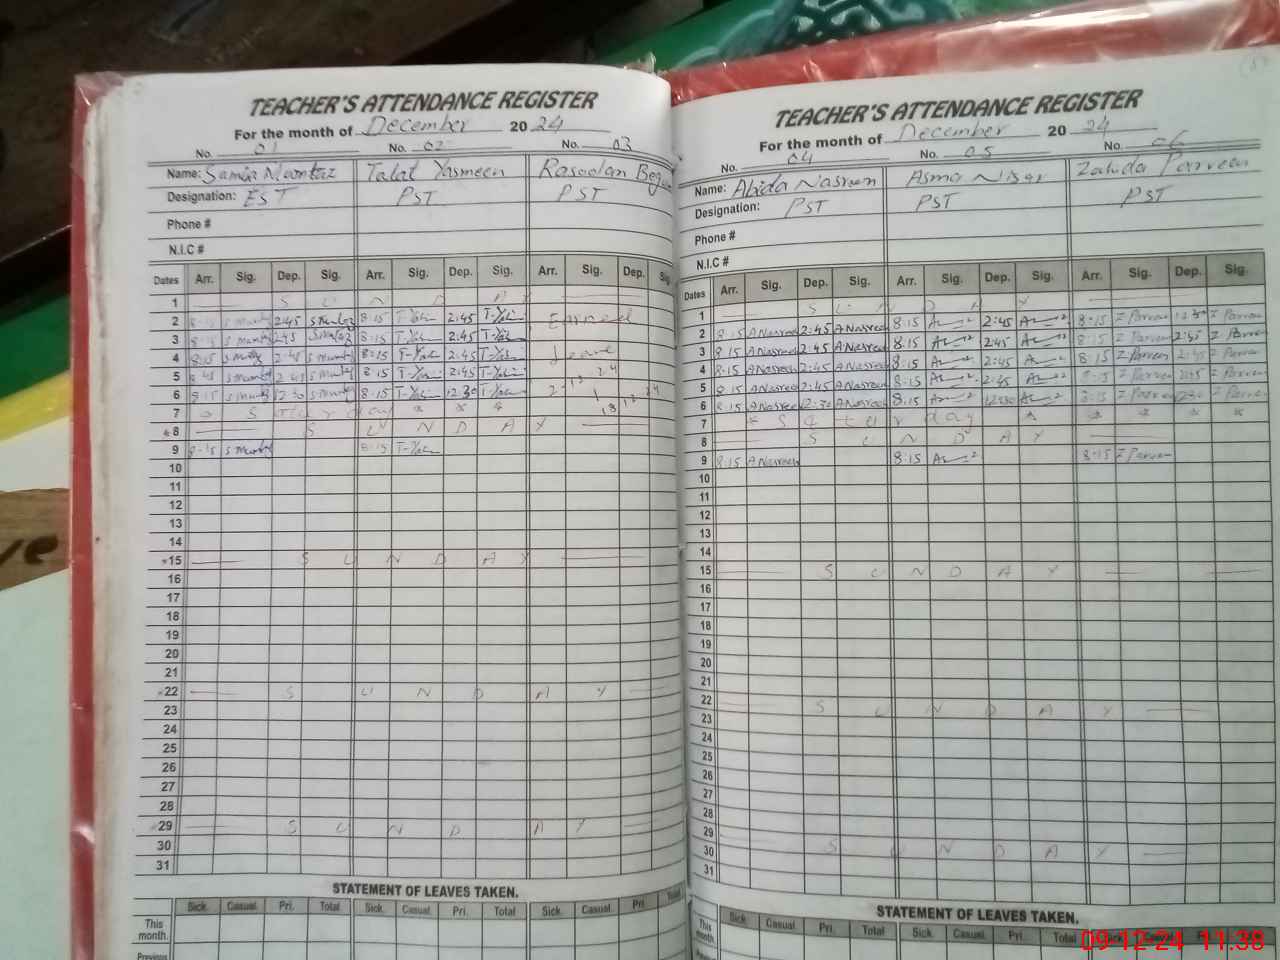 TEACHER'S ATTENDANCE REGISTER
For the month of December 2024
No. 01 No. 02 No. 03
Name: Samia Mumtaz Talat Yasmeen Rasoolan Begum
Designation: EST PST PST
Phone #
N.I.C #
Dates Arr. Sig. Dep. Sig. Arr. Sig. Dep. Sig. Arr. Sig. Dep. Sig.
1 S U N D A Y
2 8:15 S Mumtaz 2:45 S Mumtaz 8:15 2:45 Earned
3 8:15 S Mumtaz 2:45 S Mumtaz 8:15 2:45
4 8:15 S Mumtaz 2:45 S Mumtaz 8:15 2:45 Leave
5 8:15 S Mumtaz 2:45 S Mumtaz 8:15 2:45
6 8:15 S Mumtaz 12:30 S Mumtaz 8:15 12:30
7 Saturday
8 S U N D A Y
9 8:15 S Mumtaz 8:15
10
11
12
13
14
15 S U N D A Y
16
17
18
19
20
21
22 S U N D A Y
23
24
25
26
27
28
29 S U N D A Y
30
31
STATEMENT OF LEAVES TAKEN.
Sick. Casual. Pri. Total Sick. Casual. Pri. Total Sick. Casual. Pri. Total
This month.
Previous
TEACHER'S ATTENDANCE REGISTER
For the month of December 2024
No. 04 No. 05 No. 06
Name: Abida Nasreen Asma Nisar Zahida Parveen
Designation: PST PST PST
Phone #
N.I.C #
Dates Arr. Sig. Dep. Sig. Arr. Sig. Dep. Sig. Arr. Sig. Dep. Sig.
1 S U N D A Y
2 8:15 A Nasreen 2:45 A Nasreen 8:15 2:45 8:15 Z Parveen Z Parveen
3 8:15 A Nasreen 2:45 A Nasreen 8:15 2:45 8:15 Z Parveen 2:45 Z Parveen
4 8:15 A Nasreen 2:45 A Nasreen 8:15 2:45 8:15 Z Parveen 2:45 Z Parveen
5 8:15 A Nasreen 2:45 A Nasreen 8:15 2:45 8:15 Z Parveen 2:45 Z Parveen
6 8:15 A Nasreen 12:30 A Nasreen 8:15 12:30 8:15 Z Parveen 12:30 Z Parveen
7 Saturday
8 S U N D A Y
9 8:15 A Nasreen 8:15 8:15 Z Parveen
10
11
12
13
14
15 S U N D A Y
16
17
18
19
20
21
22 S U N D A Y
23
24
25
26
27
28
29 S U N D A Y
30
31
STATEMENT OF LEAVES TAKEN.
Sick. Casual. Pri. Total Sick. Casual. Pri. Total Sick. Casual.
This month.
09-12-24 11:38